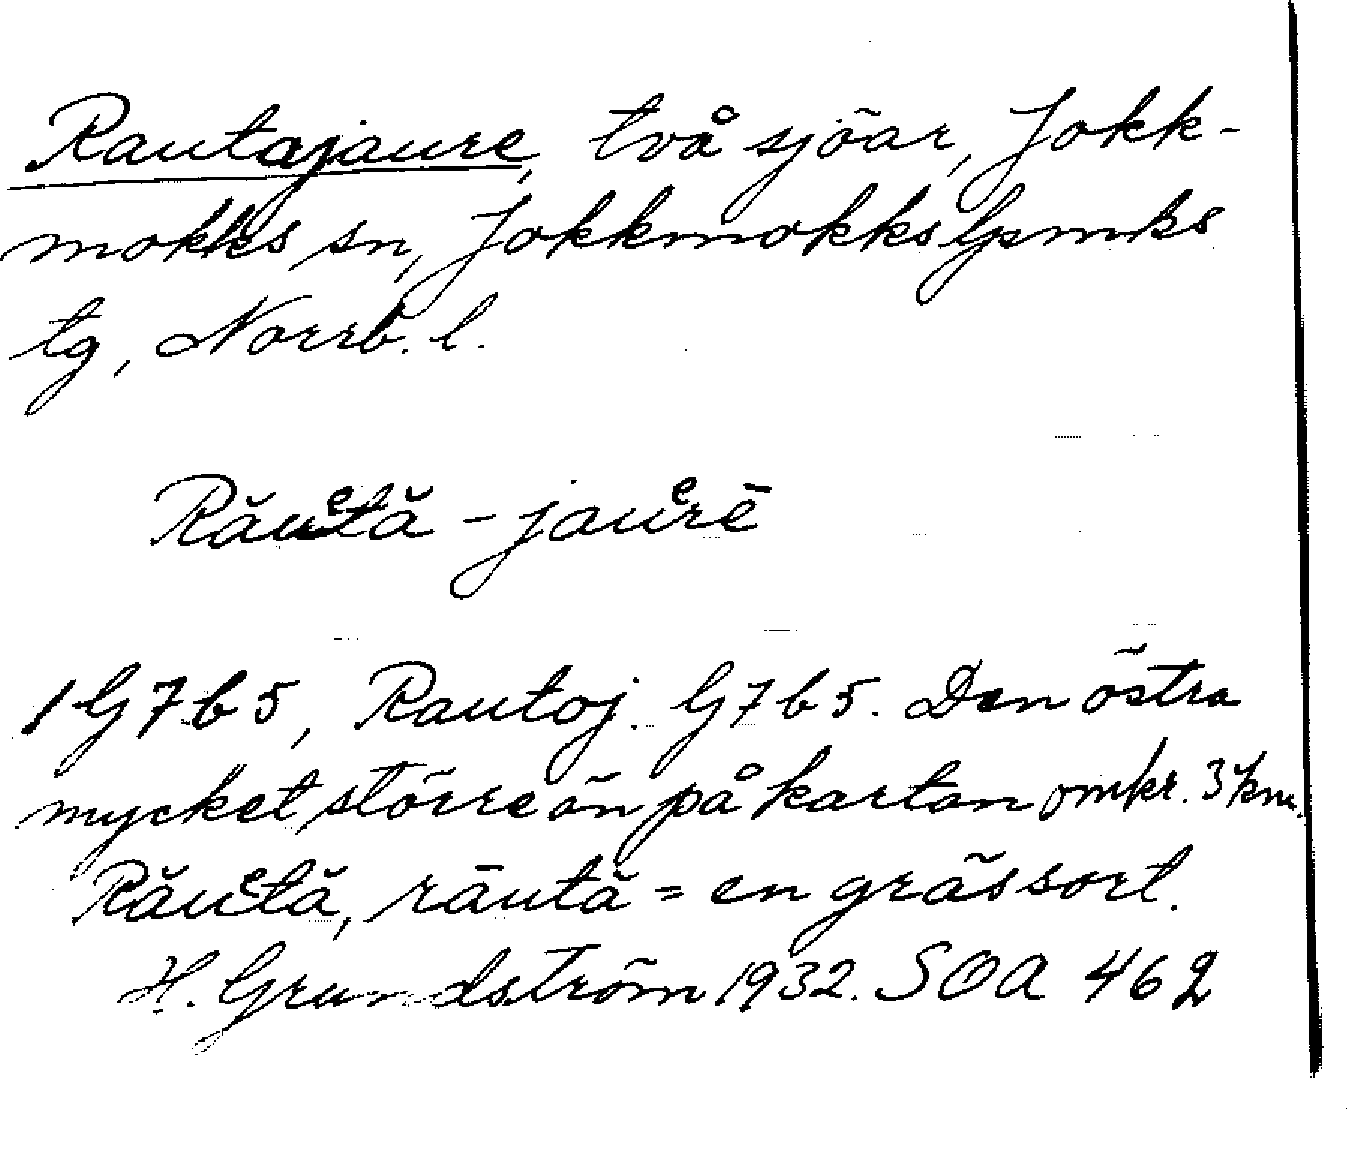 Rautajaure, två sjöar, Jokk-
mokks sn, Jokkmokks lpmks
tg, Norrb. l.
Răuᵉtă - jauᵉrē
1 G 7 b 5, Rautoj. G 7 b 5. Den östra
mycket större än på kartan omkr. 3 km.
Răuᵉtă, rāută = en grässort.
H. Grundström 1932. SOA 462